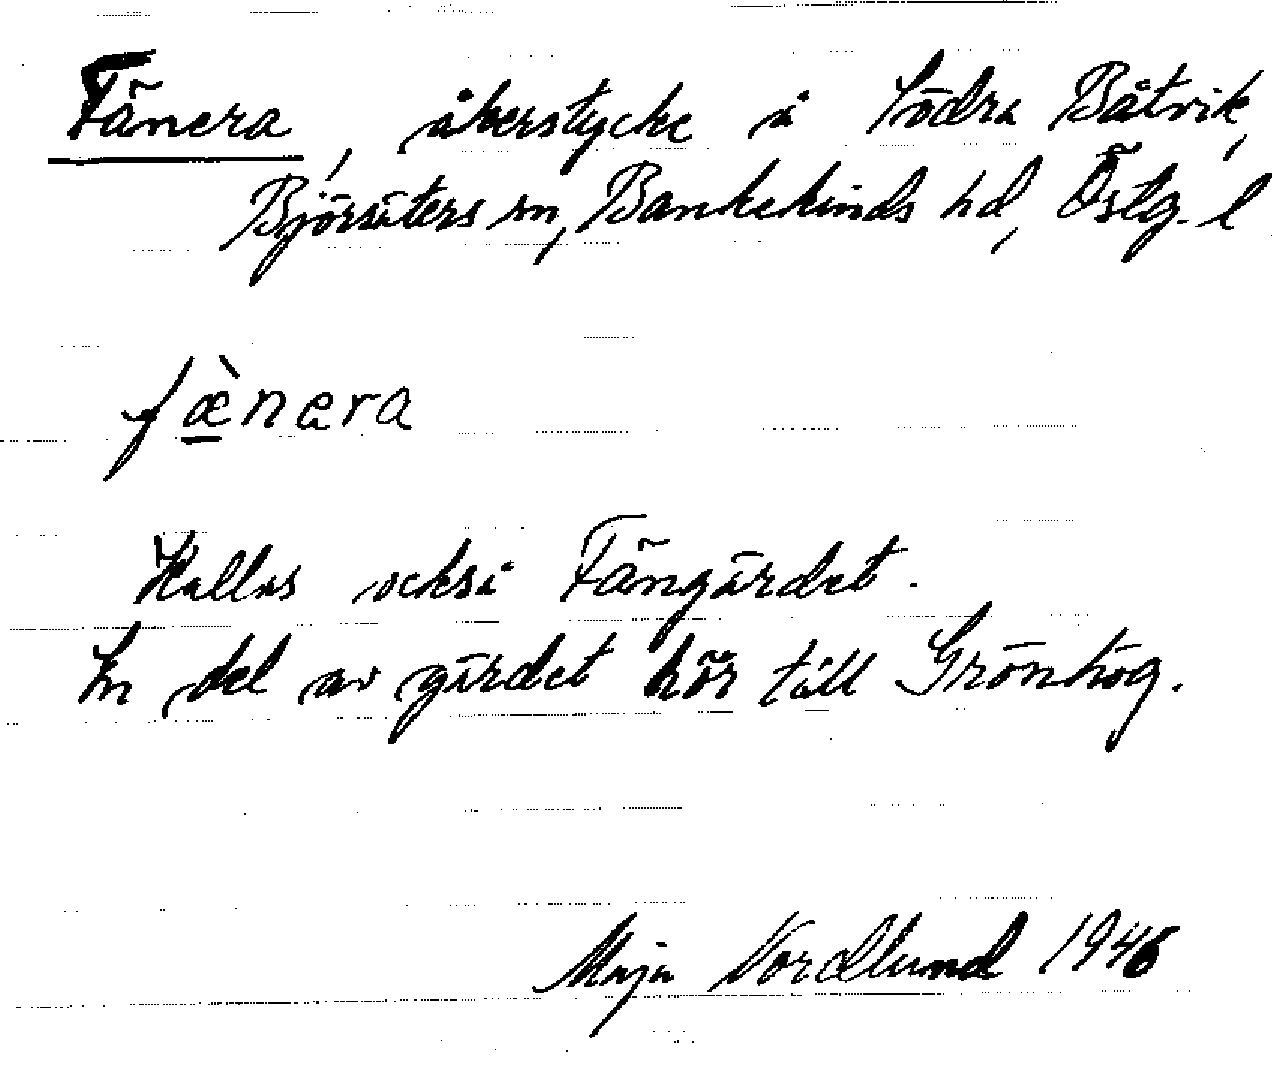 Fänera, åkerstycke å Södra Båtvik,
Björsäters sn, Bankekinds hd, Östg. l
fæ̀næra
Kallas också Fängärdet.
En del av gärdet hör till Grönhög.
Maja Nordlund 1946